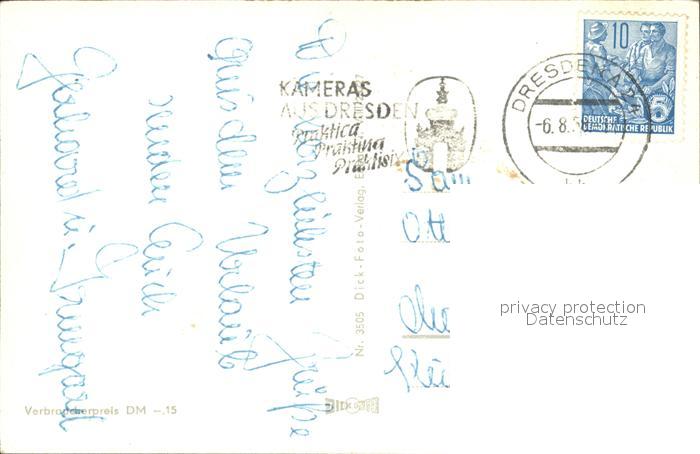 Die herzlichsten Grüße
aus dem Urlaub
senden Euch
Gerhard u. Irmgard
KAMERAS
AUS DRESDEN
Praktica
Praktina
DRESDEN
-6.8.
10
DEUTSCHE
DEMOKRATISCHE REPUBLIK
5
Fam
Ott
Nr. 3505 Dick-Foto-Verlag,
privacy protection
Datenschutz
Verbraucherpreis DM -.15
DICK